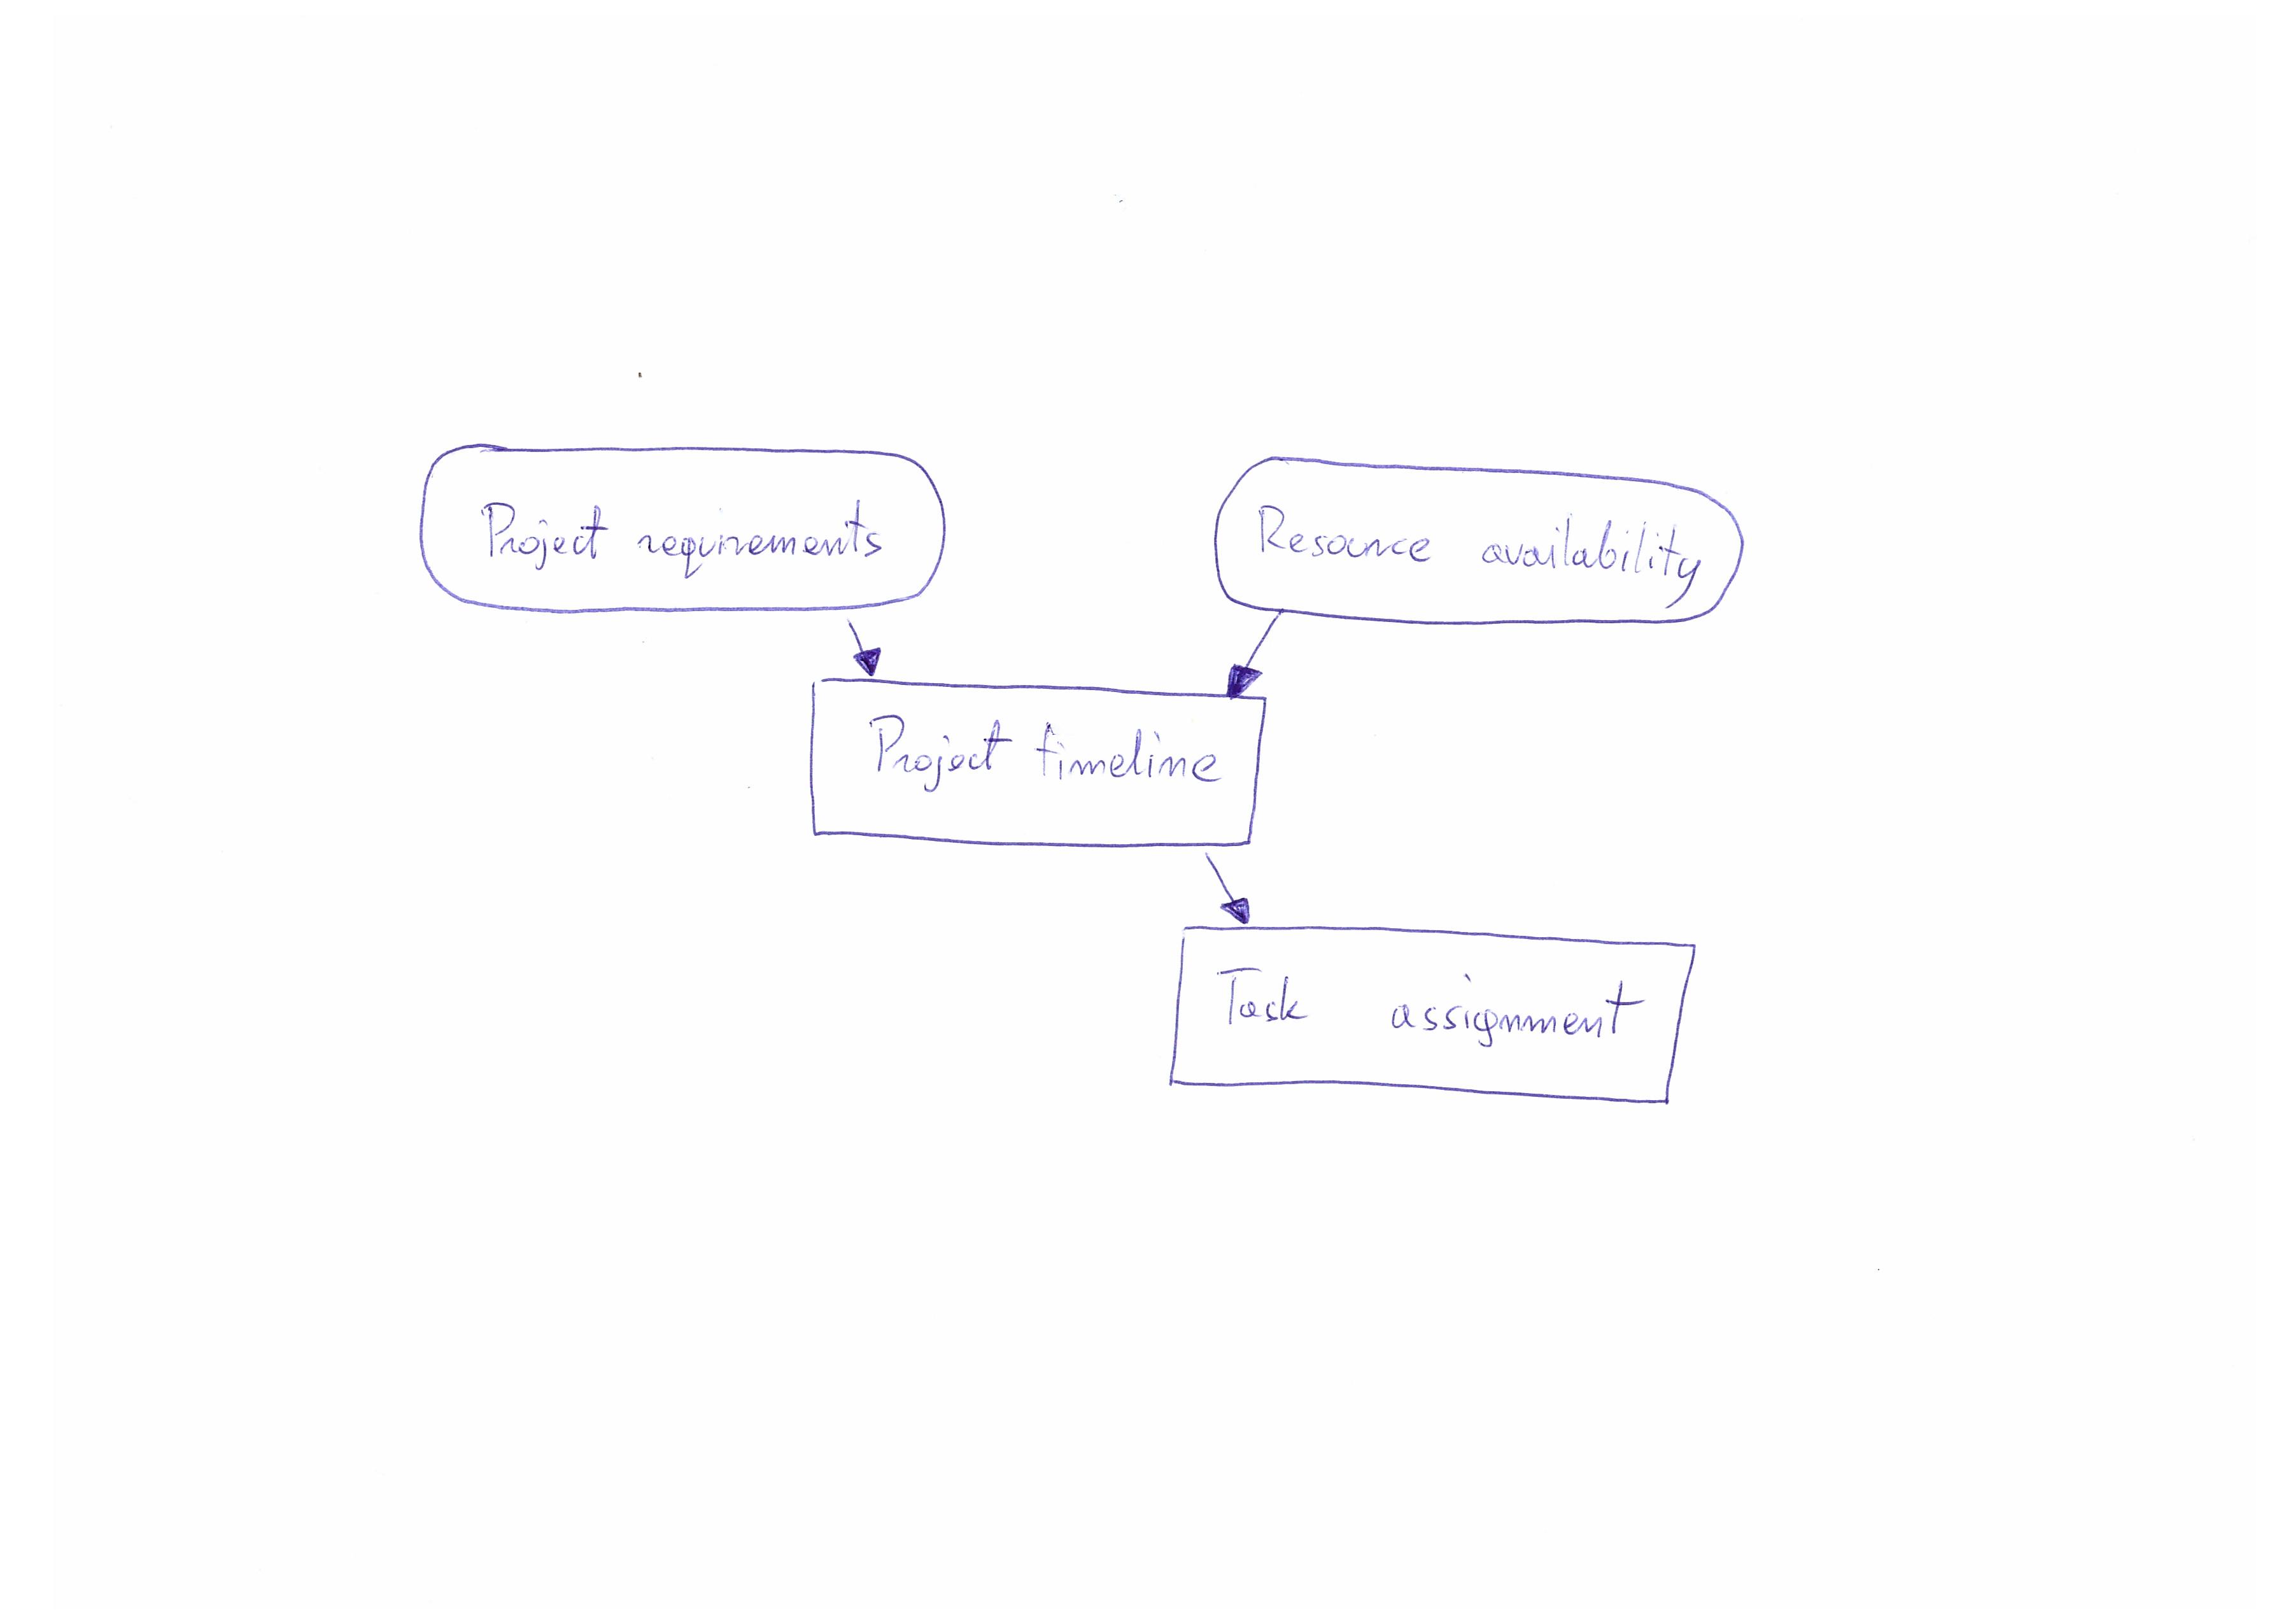 Project requirements
Resource availability
Project timeline
Task assignment